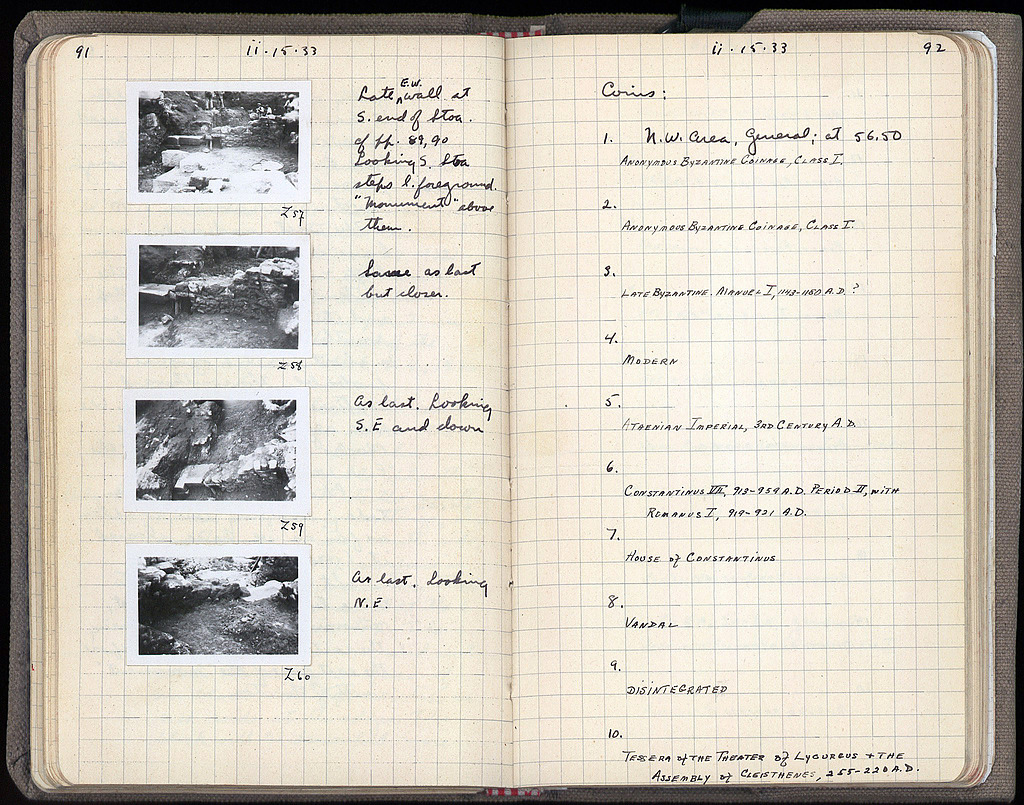 91
ii·15·33
Late E.W. wall at
S. end of Stoa.
of pp. 89, 90
Looking S. Stoa
steps l. foreground.
"Monument" above
them.
Z 57
Same as last
but closer.
Z 58
As last. Looking
S.E and down
Z 59
As last. Looking
N.E.
Z 60
ii·15·33
92
Coins:
1. N.W. Area, General; at 56,50
ANONYMOUS BYZANTINE COINAGE, CLASS I.
2.
ANONYMOUS BYZANTINE COINAGE, CLASS I.
3.
LATE BYZANTINE. MANUEL I, 1143-1180 A.D.?
4.
MODERN
5.
ATHENIAN IMPERIAL, 3RD CENTURY A.D.
6.
CONSTANTINUS VII, 913-959 A.D. PERIOD II, WITH
ROMANUS I, 919-921 A.D.
7.
HOUSE of CONSTANTINUS
8.
VANDAL
9.
DISINTEGRATED
10.
TESSERA of THE THEATER of LYCURGUS + THE
ASSEMBLY of CLEISTHENES, 255-220 A.D.